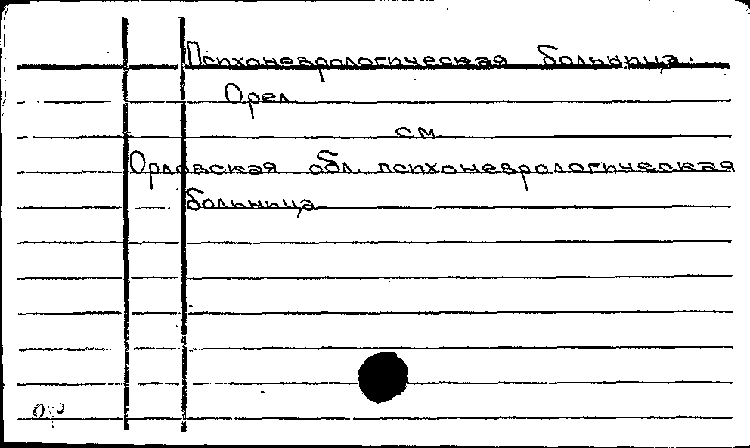 Психоневрологическая больница.
Орел
см.
Орловская обл. психоневрологическая
больница